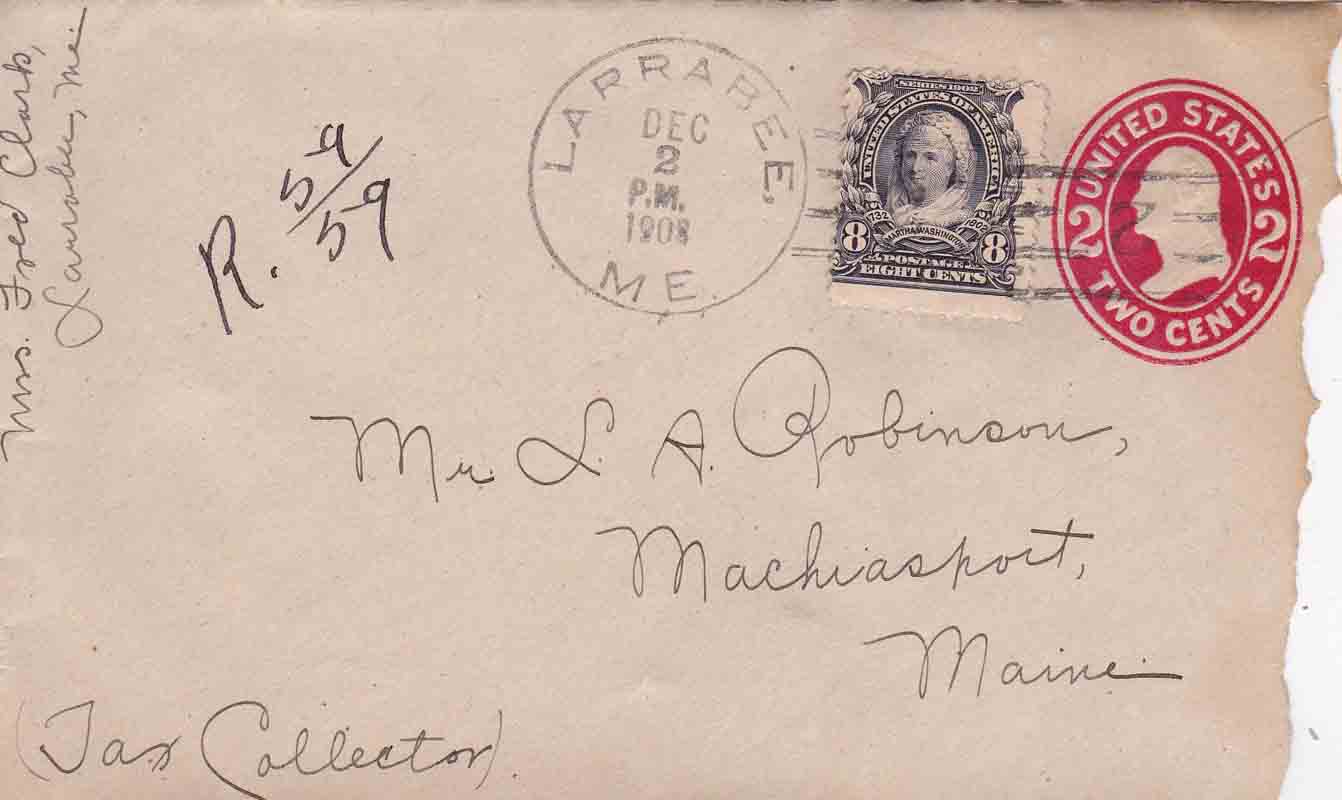 Mrs. Fred Clark,
Larrabee, Me.
R. 59/59
LARRABEE,
DEC
2
P.M.
1908
ME.
SERIES 1902
UNITED STATES OF AMERICA
1732 1902
MARTHA WASHINGTON
8 8
POSTAGE
EIGHT CENTS
UNITED STATES
2 2
TWO CENTS
Mr. L. A. Robinson,
Machiasport,
Maine.
(Tax Collector).